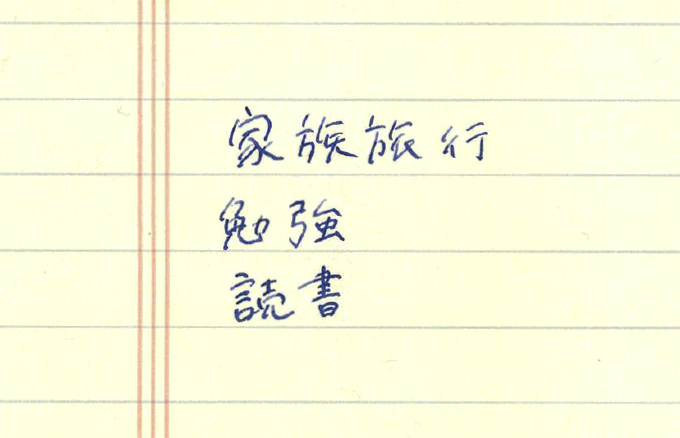 家族旅行
勉強
読書